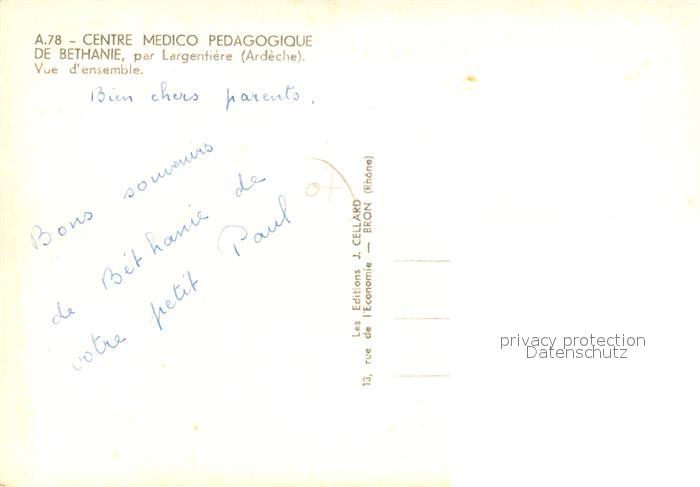 A.78 - CENTRE MEDICO PEDAGOGIQUE
DE BETHANIE, par Largentière (Ardèche).
Vue d'ensemble.
Bien chers parents.
Bons souvenirs
de Béthanie de
votre petit Paul
Les Editions J. CELLARD
13, rue de l'Economie — BRON (Rhône)
privacy protection
Datenschutz